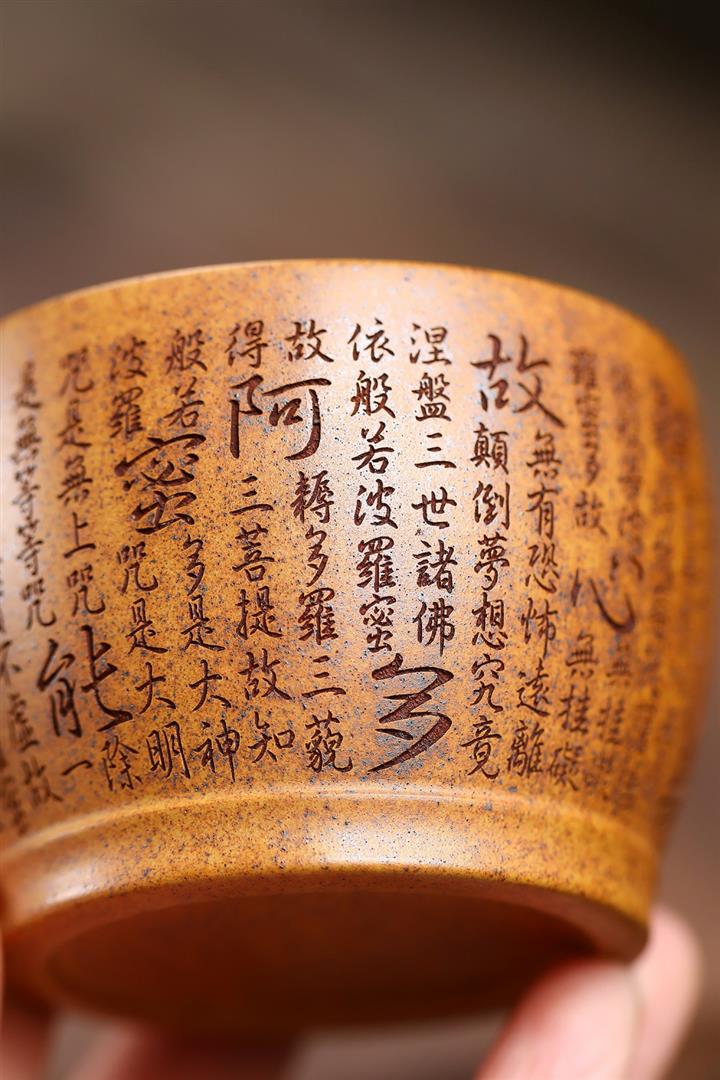 羅蜜多故心無挂礙
故無有恐怖遠離
顛倒夢想究竟
涅盤三世諸佛
依般若波羅蜜多
故耨多羅三藐
得阿三菩提故知
般若多是大神
波羅密咒是大明
咒是無上咒能除
是無等等咒一
不虛故